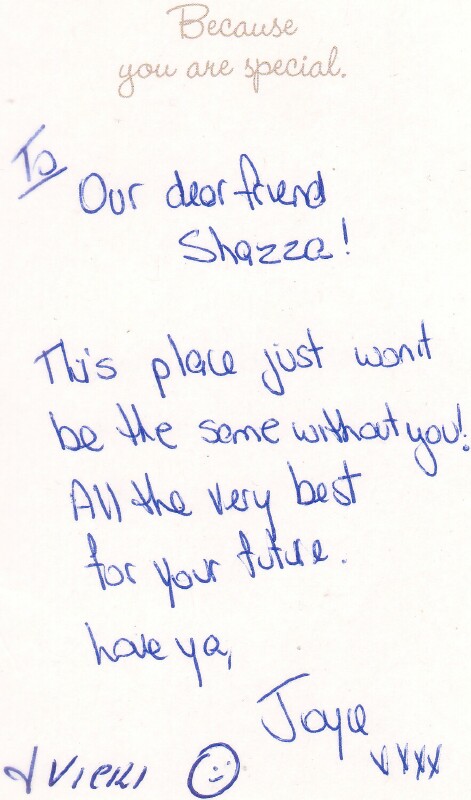 Because
you are special.
To
Our dear friend
Shazza!
This place just won't
be the same without you!
All the very best
for your future.
Love ya,
Joyce
xxxx
& Vicki